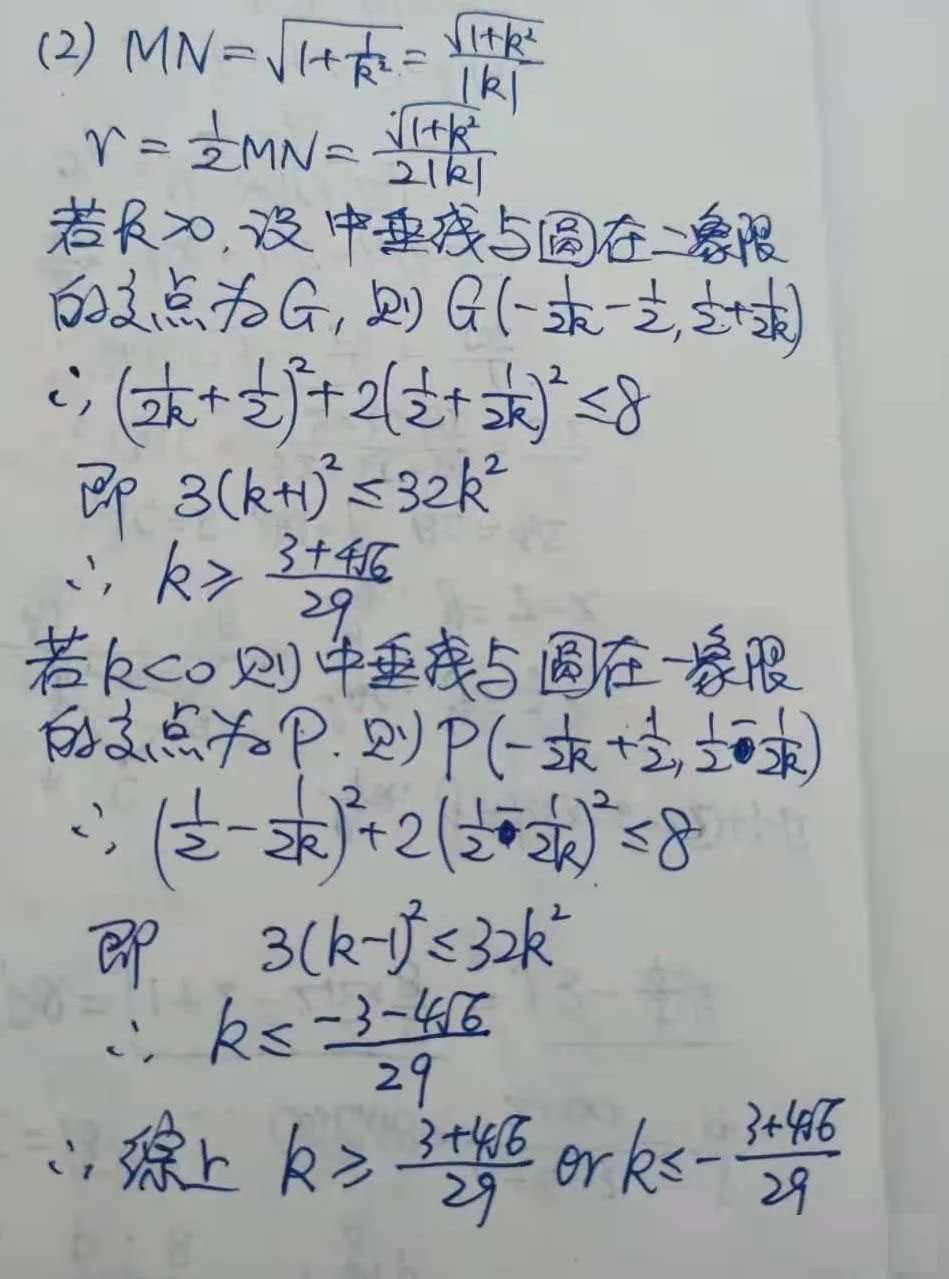 (2) MN=√(1+1/k²)=√(1+k²)/|k|
r=1/2MN=√(1+k²)/2|k|
若k>0,设中垂线与圆在二象限
的交点为G,则G(-1/2k-1/2,1/2+1/2k)
∴(1/2k+1/2)²+2(1/2+1/2k)²≤8
即 3(k+1)²≤32k²
∴ k≥(3+4√6)/29
若k<0则中垂线与圆在一象限
的交点为P.则P(-1/2k+1/2,1/2-1/2k)
∴(1/2-1/2k)²+2(1/2-1/2k)²≤8
即 3(k-1)²≤32k²
∴ k≤(-3-4√6)/29
∴综上 k≥(3+4√6)/29 or k≤-(3+4√6)/29